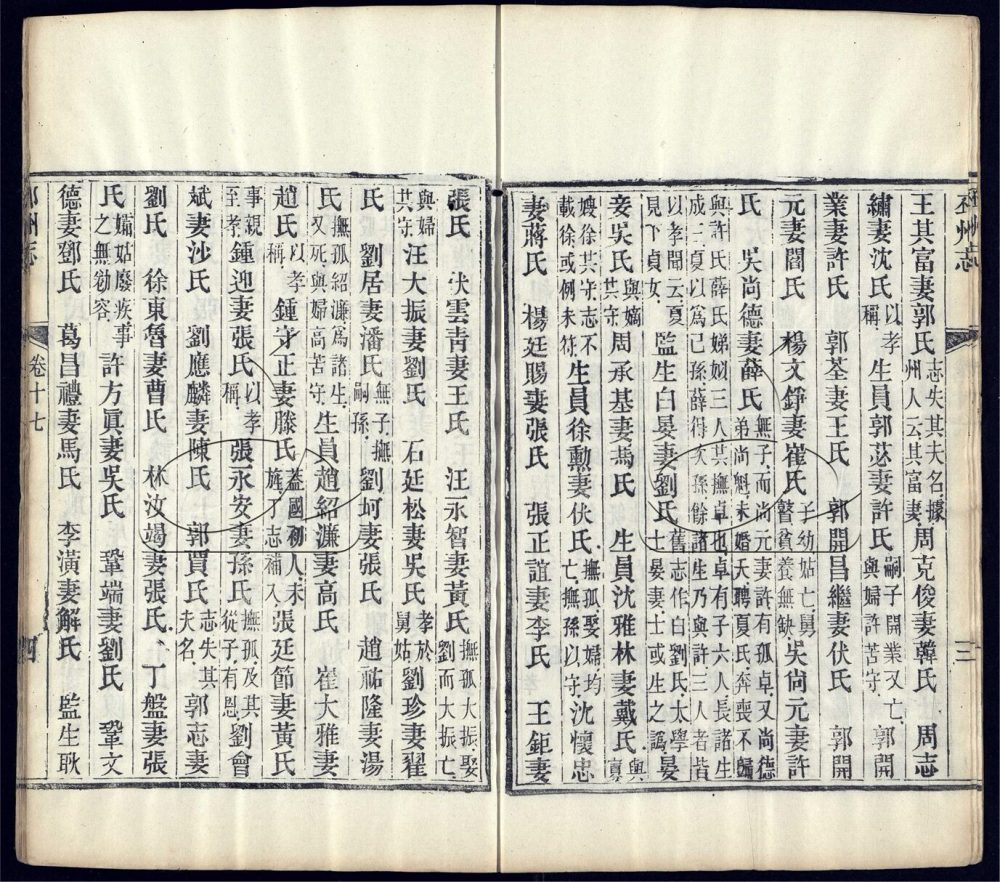 邳州志 三
王其富妻郭氏志失其夫名據州人云其富妻周克俊妻韓氏 周志
繡妻沈氏以孝稱 生員郭苾妻許氏嗣子開業又亡與婦許苦守 郭開
業妻許氏 郭荃妻王氏 郭開昌繼妻伏氏 郭開
元妻閻氏 楊文錚妻崔氏子幼姑亡舅瞽貧養無缺吳尙元妻許
氏 吳尚德妻薛氏無子而尚元妻許有孤卓又尚德弟尚魁未婚夭聘夏氏奔喪不歸
與許氏薛氏娣姒三人共撫卓也卓有子六人長諸生
成三夏以為己孫薛得次孫餘諸生乃與許三人者皆
以孝聞云夏見下貞女 監生白晏妻劉氏舊志作白劉氏太學士晏妻士或生之譌晏
妾吳氏與嫡共守 周承基妻馬氏 生員沈雅林妻戴氏與寡
嫂徐共守志不載徐或例未符生員徐勲妻伏氏撫孤娶婦均亡撫孫以守沈懷忠
妻蔣氏 楊廷賜妻張氏 張正誼妻李氏 王鉅妻
張氏 伏雲青妻王氏 汪永智妻黃氏撫孤大振娶劉而大振亡
與婦共守汪大振妻劉氏 石廷松妻吳氏孝於舅姑劉珍妻翟
氏 劉居妻潘氏無子撫嗣孫劉坷妻張氏 趙祐隆妻湯
氏撫孤紹濂爲諸生又死與婦高苦守生員趙紹濂妻高氏 崔大雅妻
趙氏以孝稱 鍾守正妻滕氏蓋國初人未旌丁志補入張廷節妻黃氏
事親至孝鍾迎妻張氏以孝稱 張永安妻孫氏撫孤及其從子有恩劉會
斌妻沙氏 劉應麟妻陳氏 郭賈氏志失其夫名 郭志妻
劉氏 徐東魯妻曹氏 林汝竭妻張氏 丁盤妻張
氏孀姑廢疾事之無勌容 許方眞妻吳氏 鞏端妻劉氏 鞏文
德妻鄧氏 葛昌禮妻馬氏 李潢妻解氏 監生耿
州志 卷十七